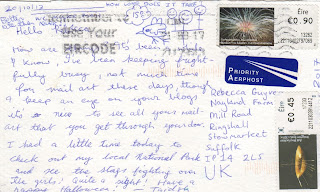 20/10/17
HOW LONG DOES IT TAKE
Use Your
EIRCODE
Éire
€0.90
Hello R
How are it's been
I know, I've been keeping fright-
fully busy, not much time
for mail art these days, though
I keep an eye on your blog,
it's so nice to see all your mail-
art that you get through your door.
I had a little time today to
check out my local National Park
and see the stags fighting over
the girls! Quite a sight! Have a
Halloween!
PRIORITY
AERPHOST
Rebecca Guyver
Nayland Farm
Mill Road
Ringshall
Stowmarket
Suffolk
IP14 2LS
UK
Éire
€0.45